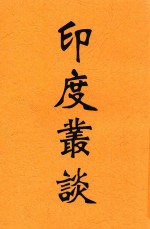 印度叢談